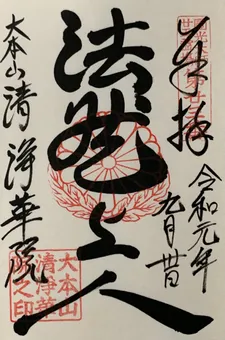 奉拝
令和元年
九月
法然上人
大本山清浄華院
大本山
清浄華
院之印